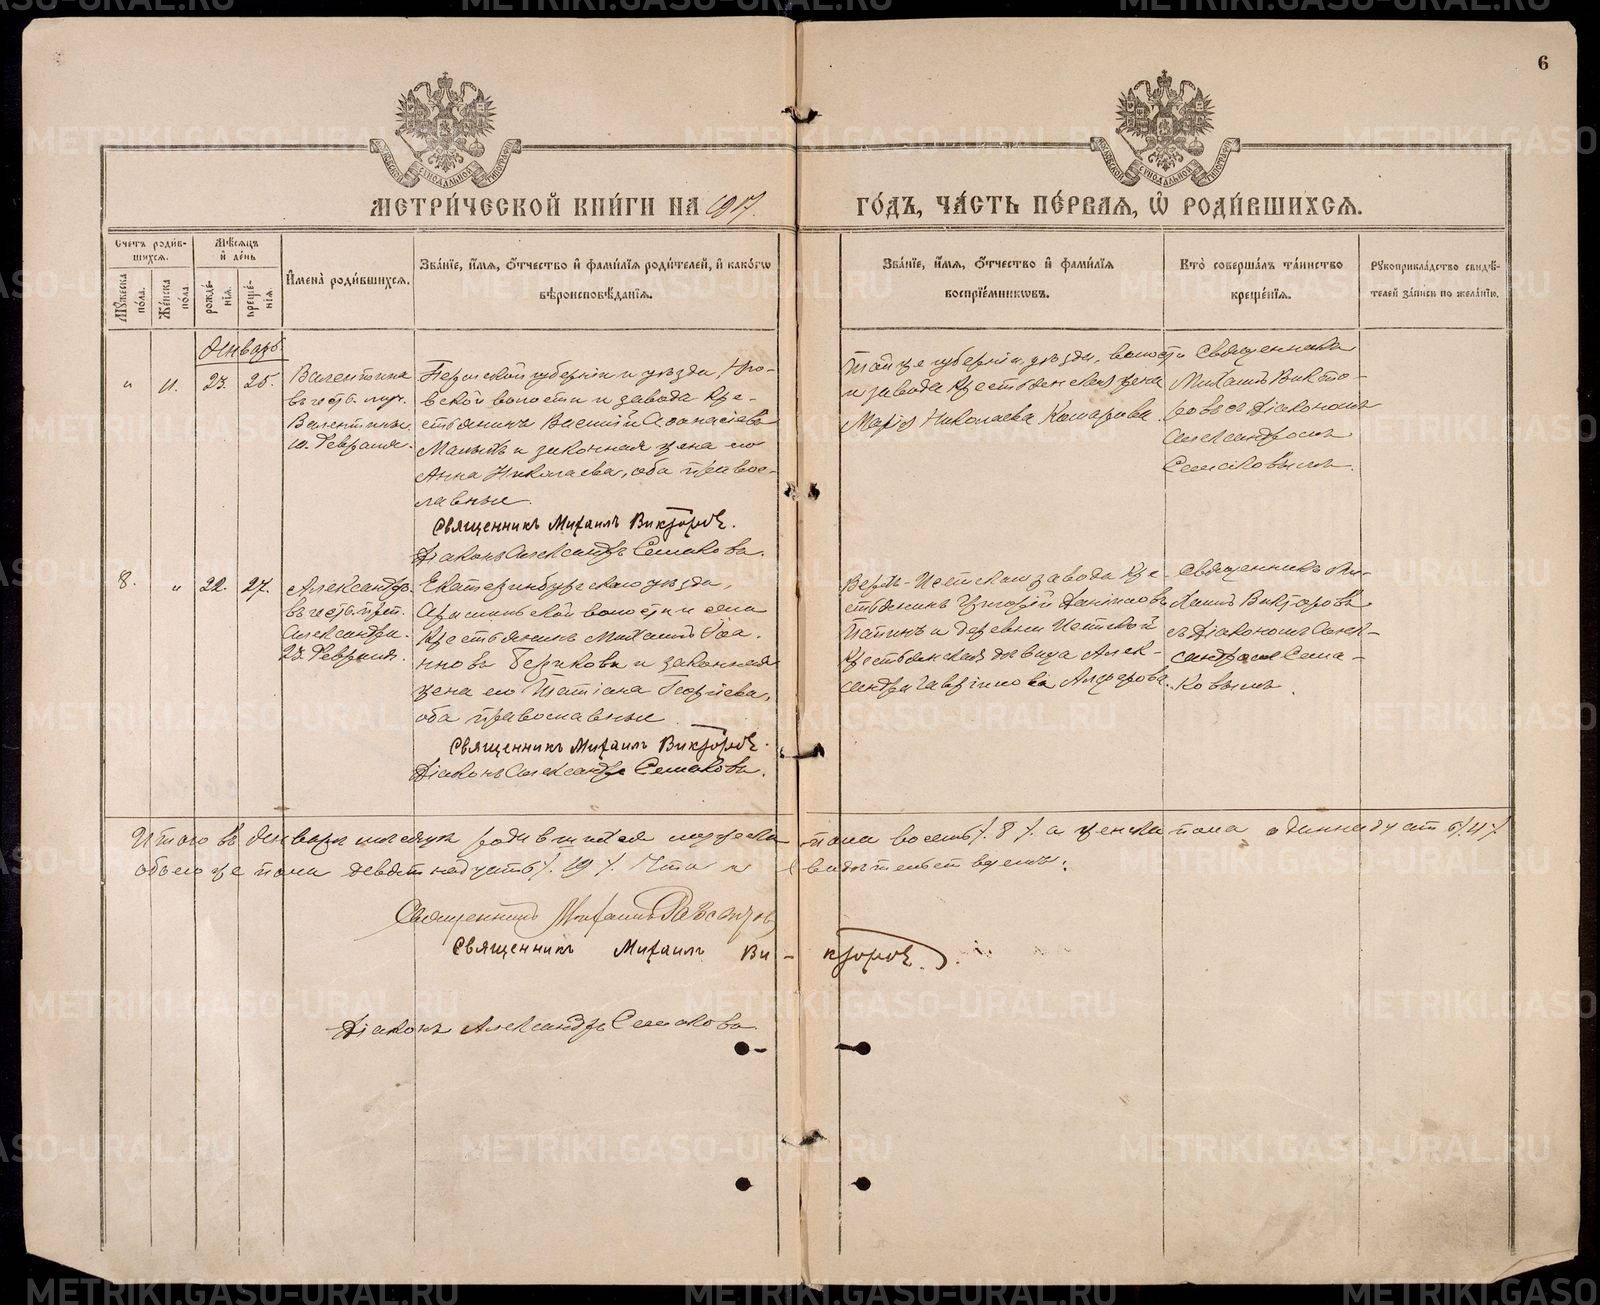 6
МОСКОВСКОЙ СИНОДАЛЬНОЙ ТИПОГРАФІИ
МОСКОВСКОЙ СИНОДАЛЬНОЙ ТИПОГРАФІИ
МЕТРИ́ЧЕСКОЙ КНИ́ГИ НА 1917.
ГО́ДЪ, ЧА́СТЬ ПЕ́РВАЯ, Ѡ҆ РОДИ́ВШИХСЯ.
Счетъ роди́в-
шихся.
Мѣ́сяцъ
и҆ де́нь
Мꙋ́жеска
по́ла.
Же́нска
по́ла.
рожде́-
нія.
креще́-
нія.
И҆мена̀ роди́вшихся.
Зва́ніе, и҆́мя, ѻ҆́тчество и҆ фами́лія роди́телей, и҆ како́гѡ
вѣроисповѣ́данія.
Зва́ніе, и҆́мя, ѻ҆́тчество и҆ фами́лія
воспріе́мниковъ.
Кто̀ соверша́лъ та́инство
креще́нія.
Рꙋкоприкла́дство свидѣ́-
телей за́писи по жела́нію.
Январь.
" 11. 23. 25.
Валентина
въ честь муч.
Валентины
10. Февраля.
Пермской губерніи и уѣзда,
вской волости и завода кре-
стьянинъ Василій Аѳанасіевъ
и законная жена его
Анна Николаева, оба право-
славные.
Священникъ Михаилъ Викторовъ.
Діаконъ Александръ Семаковъ.
Той же губерніи, уѣзда, волости
и завода крестьянская жена
Марія Николаева Комарова.
Священникъ
Михаилъ Викто-
ровъ съ діакономъ
Александромъ
Семаковымъ.
8. " 22. 27.
Александръ
въ честь преп.
Александра.
23. Февраля.
Екатеринбургскаго уѣзда,
волости и села
крестьянинъ Михаилъ Іоа-
нновъ и законная
жена его Татіана Георгіева,
оба православные.
Священникъ Михаилъ Викторовъ.
Діаконъ Александръ Семаковъ.
Верхъ-Исетскаго завода кре-
стьянинъ Григорій Даніиловъ
и деревни Исетской
крестьянская дѣвица Алек-
сандра Гавріилова Алферова.
Священникъ Ми-
хаилъ Викторовъ
съ діакономъ Алек-
сандромъ Сема-
ковымъ.
Итого въ Январѣ мѣсяцѣ родившихся мужеска пола восемь /. 8 /. а женска пола одиннадцать /. 11 /.
обоего же пола девятнадцать /. 19 /. Что и свидѣтельствуемъ:
Священникъ Михаилъ
Священникъ Михаилъ Ви-кторовъ.
Діаконъ Александръ Семаковъ
METRIKI.GASO-URAL.RU